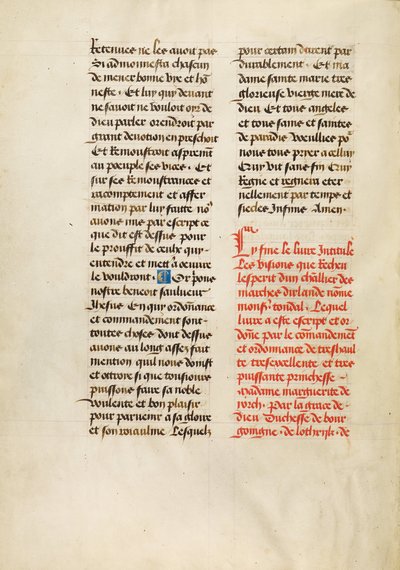 Retenues ne les auoit pas
Si admonnesta chascun
de mener bonne vye et hō
neste · Et luy qui deuant
ne sauoit ne vouloit oyr de
dieu parler orendroit par
grant deuotion en preschoit
Et Remonstroit asprement
au peuple ses vices · Et
sur ses Remonstrances et
racomptement et affer
mation par luy faitte no9
auons mis par escript ce
que dit est dessus pour
le prouffit de ceulx qui
entendre et mettre a oeuure
le vouldront · Or prons
nostre benoit saulueur
Ihesus En qui ordonnance
et commandement sont
touttes choses dont dessus
auons au long assez fait
mention quil nous doinst
et ottroie si que tousiours
puissons faire sa noble
voulente et bon plaisir
pour paruenir a sa gloire
et son roiaulme Lesquelz
pour certain durent par
durablement · Et ma
dame sainte marie tres
glorieuse vierge mere de
dieu Et tous angeles
et tous sains et saintes
de paradis vueillies po9
nous tous pryer a celluy
Quy vit sans fin Quy
Regne et regnera eter
nellement par temps et
siecles Infinis Amen ·
Cy fine le liure Intitule
Les visions que Recheu
lesperit dun chlier des
marches dirlande nōme
monsr tondal · Lequel
liure a este escript et or
donē par le cōmandemēt
et ordonnance de treshaul
te tresexellente et tres
puissante princhesse
Madame marguerite de
yorch · Par la grace de
dieu Duchesse de bour
goingne · de lothrijk · de